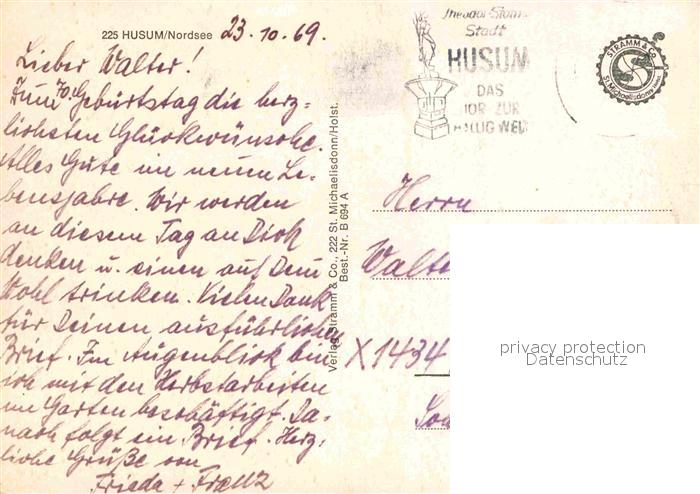 225 HUSUM/Nordsee 23.10.69.
Lieber Walter!
Zum 70. Geburtstag die herz-
lichsten Glückwünsche.
Alles Gute im neuen Le-
bensjahre. Wir werden
an diesem Tag an Dich
denken u. einen auf Dein
Wohl trinken. Vielen Dank
für Deinen ausführlichen
Brief. Im Augenblick bin
ich mit den Herbstarbeiten
im Garten beschäftigt. Da-
nach folgt ein Brief. Herz-
liche Grüße von
Frieda + Franz
Verlag Stramm & Co., 222 St. Michaelisdonn/Holst.
Best.-Nr. B 694 A
Theodor-Storm-
Stadt
HUSUM
DAS
TOR ZUR
HALLIGWELT
STRAMM & CO.
St. Michaelisdonn
Herrn
Walte
X1434
privacy protection
Datenschutz